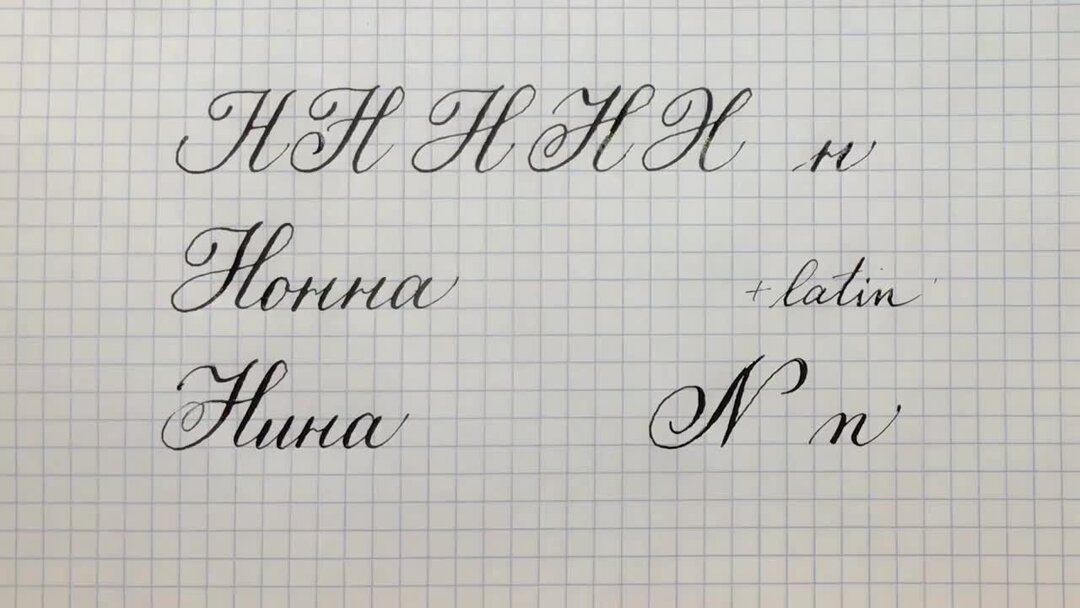 Н Н Н Н Н н
Нонна
+latin
Нина
N n